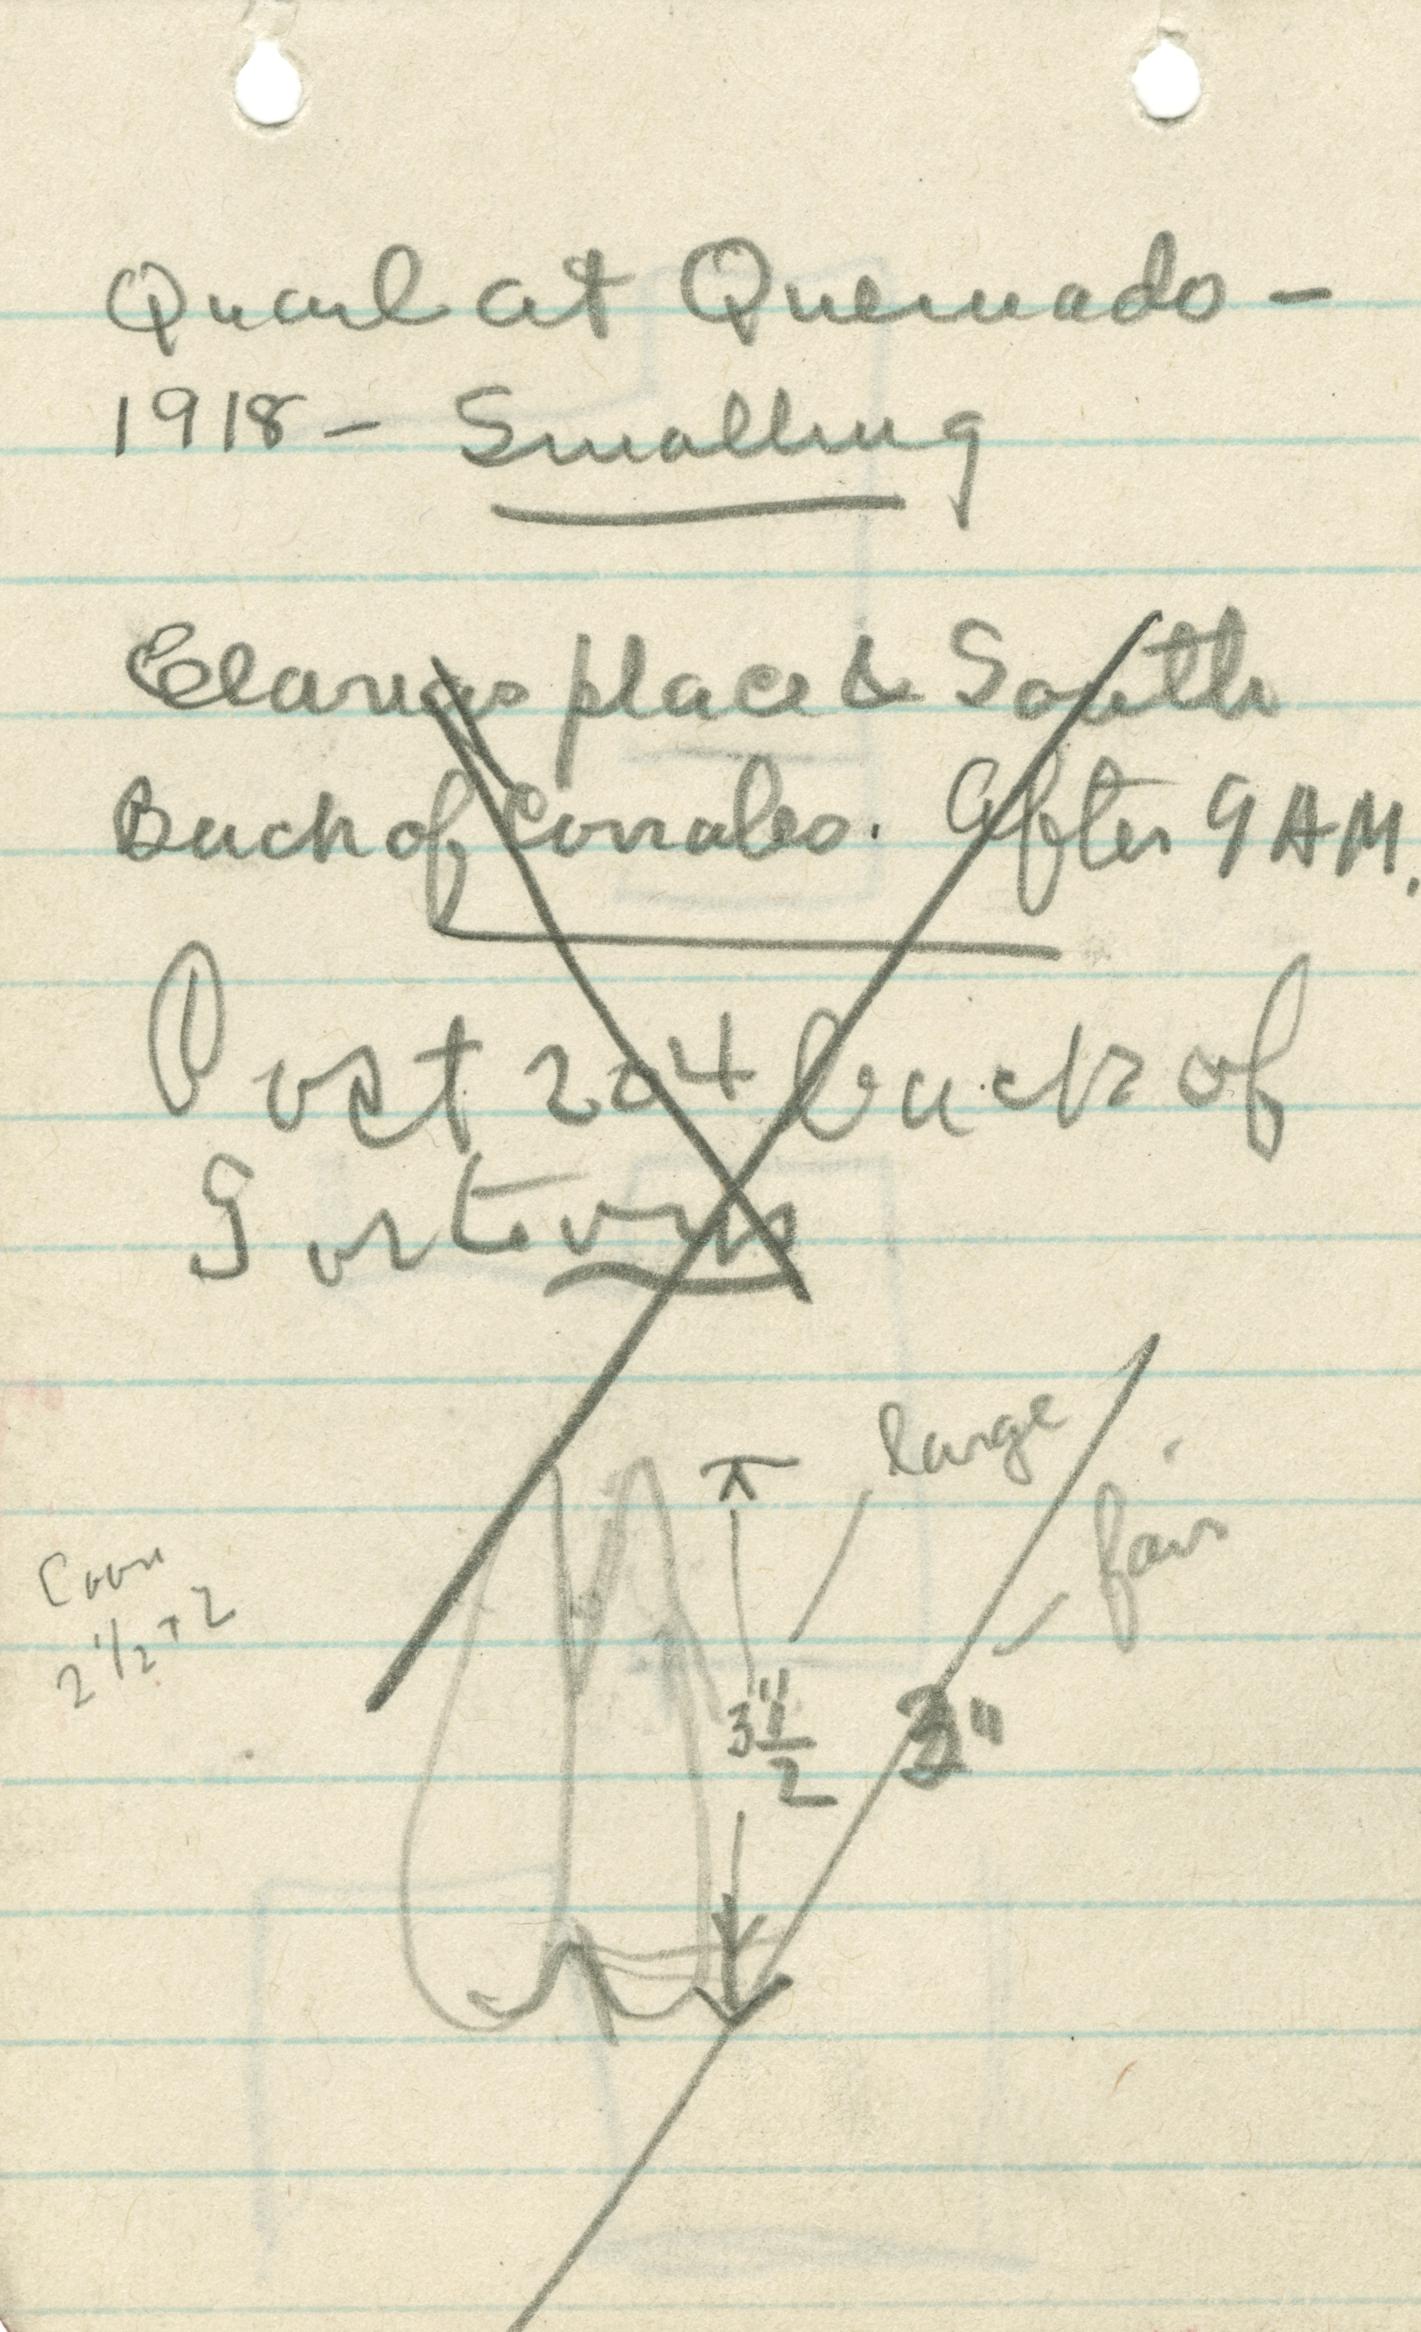 Quail at Quemado -
1918 - Smalling
place & South
Back of Corrales. After 9 AM.
Post 204 back of
large
fair
Coon
2 1/2 + 2
3 1/2" 3"